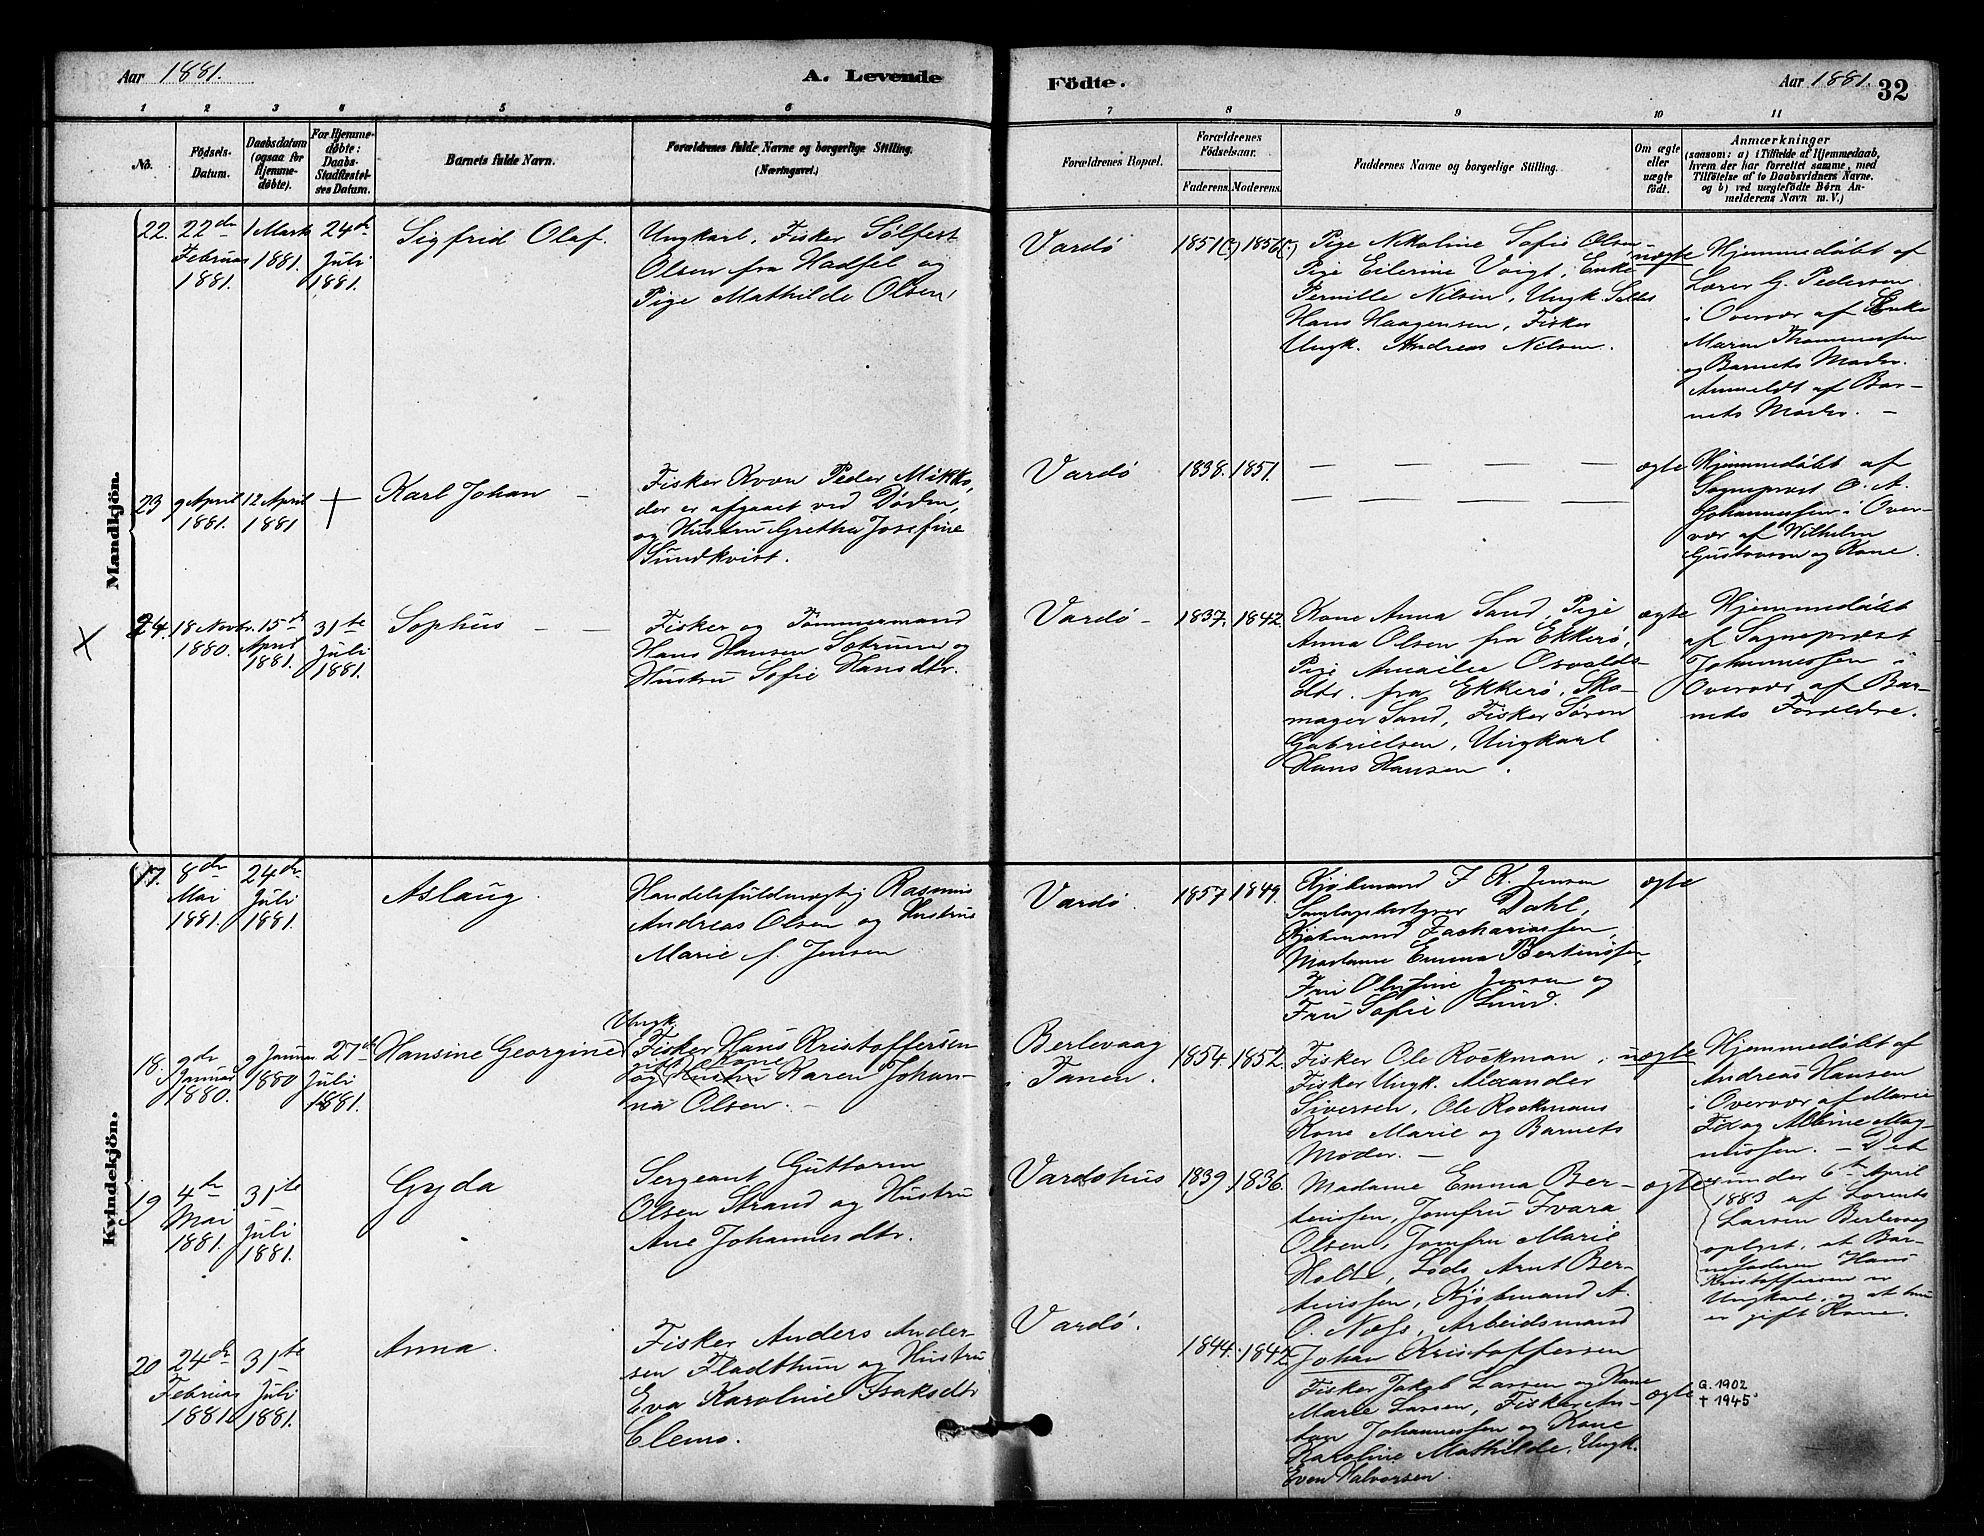 Aar 1881.
A. Levende
Födte.
Aar 1881.
32
1 2 3 4 5 6 7 8 9 10 11
No.
Födsels-
Datum.
Daabsdatum
(ogsaa for
Hjemme-
døbte).
For Hjemme-
døbte:
Daabs-
Stadfæstel-
ses Datum.
Barnets fulde Navn.
Forældrenes fulde Navne og borgerlige Stilling.
(Næringsvei.)
Forældrenes Bopæl.
Forældrenes
Födselsaar.
Faderens.
Moderens.
Faddernes Navne og borgerlige Stilling.
Om ægte
eller
uægte
født.
Anmærkninger
(saasom: a) i Tilfælde af Hjemmedaab,
hvem der har forrettet samme, med
Tilföielse af to Daabsvidners Navne,
og b) ved uægtefödte Börn An-
melderens Navn m. V.)
Mandkjön.
22.
22de
Februar
1881.
1 Marts
1881.
24de
Juli
1881.
Sigfrid Olaf.
Ungkarl, Fisker Sølfest
Olsen fra Hadsel og
Pige Mathilde Olsen.
Vardø
1851(?)
1856(?)
Pige Nikoline Sofie Olsen
Pige Eilerine Voigt, Enke
Pernille Nilsen, Ungk.
Hans Haagensen, Fisker
Ungk. Andreas Nilsen.
uægte
Hjemmedøbt af
Lærer G. Pedersen
i Overvær af Enke
Maren Thommessen
og Barnets Moder.
Anmeldt af Bar-
nets Moder. —
23
9 April
1881.
12 April
1881
+
Karl Johan —
Fisker Kvæn Peder Mikko,
der er afgaaet ved Døden,
og Hustru Gretha Josefine
Sundkvist.
Vardø
1838.
1851.
— — — —
— — — —
ægte
Hjemmedøbt af
Sognepræst O. A.
Johannessen i Over-
vær af Wilhelm
Gustavson og Kone.
X
24.
18 Novbr.
1880.
15de
April
1881.
31te
Juli
1881.
Sophus — —
Fisker og Tømmermand
Hans Hansen Sætrum og
Hustru Sofie Hansdtr.
Vardø —
1837.
1842
Kone Anna Sand, Pige
Anna Olsen fra Ekkerø,
Pige Amalie Osvalds-
dtr. fra Ekkerø, Sko-
mager Sand, Fisker Søren
Gabrielsen, Ungkarl
Hans Hansen.
ægte
Hjemmedøbt
af Sognepræst
Johannessen i
Overvær af Bar-
nets Forældre.
Kvindekjön.
17.
8de
Mai
1881.
24de
Juli
1881.
Aslaug.
Handelsfuldmægtig Rasmus
Andreas Olsen og Hustru
Marie f. Jensen
Vardø.
1857
1849.
Kjøbmand J. K. Jensen
Dahl,
Kjøbmand Zachariassen,
Madame Emma Bertinssen,
Fru Olufine Jensen og
Fru Sofie Lund.
ægte
18.
9de
Januar
1880.
9 Januar
1880
27de
Juli
1881.
Hansine Georgine
Ungk.
Fisker Hans Kristoffersen
gift Kone
og Hustru Karen Johan-
na Olsen. —
Berlevaag
i Tanen.
1854.
1852.
Fisker Ole Rockman,
Fisker Ungk. Alexander
Siversen, Ole Rockmans
Kone Marie og Barnets
Moder. —
uægte
Hjemmedøbt af
Andreas Hansen
i Overvær af Marie
Fix og Albine Mag-
nussen. — Det
er under 6te April
1883 af Lorents
Larsen Berlevaag
oplyst, at Bar-
nefaderen Hans
Kristoffersen er
Ungkarl, og at hun
er gift Kone.
19
4de
Mai
1881.
31te
Juli
1881.
Gyda
Sergeant Guttorm
Olsen Strand og Hustru
Ane Johannesdtr.
Vardøhus
1839.
1836.
Madame Emma Ber-
tinssen, Jomfru Ivara
Olsen, Jomfru Marie
Holte, Lods Arnt Ber-
tinssen, Kjøbmand A.
O. Næss, Arbeidsmand
Johan Kristoffersen
ægte
20
24de
Februar
1881.
31te
Juli
1881.
Anna.
Fisker Anders Ander-
sen Fladthun og Hustru
Eva Karoline Isaksdtr
Clemo.
Vardø.
1844.
1842
Fisker Jakob Larsen og Kone
Marie Larsen, Fisker An-
ton Johannessen og Kone
Karoline Mathilde, Ungk.
Even Halvorsen.
ægte
G. 1902
† 1945